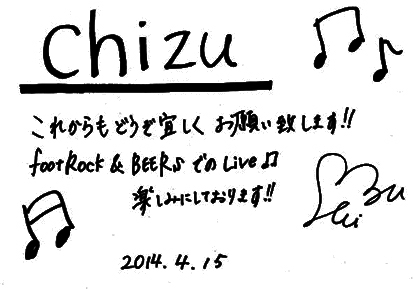 Chizu
これからもどうぞ宜しくお願い致します!!
footRock & BEER♪ でのLive♫
楽しみにしております!!
2014.4.15